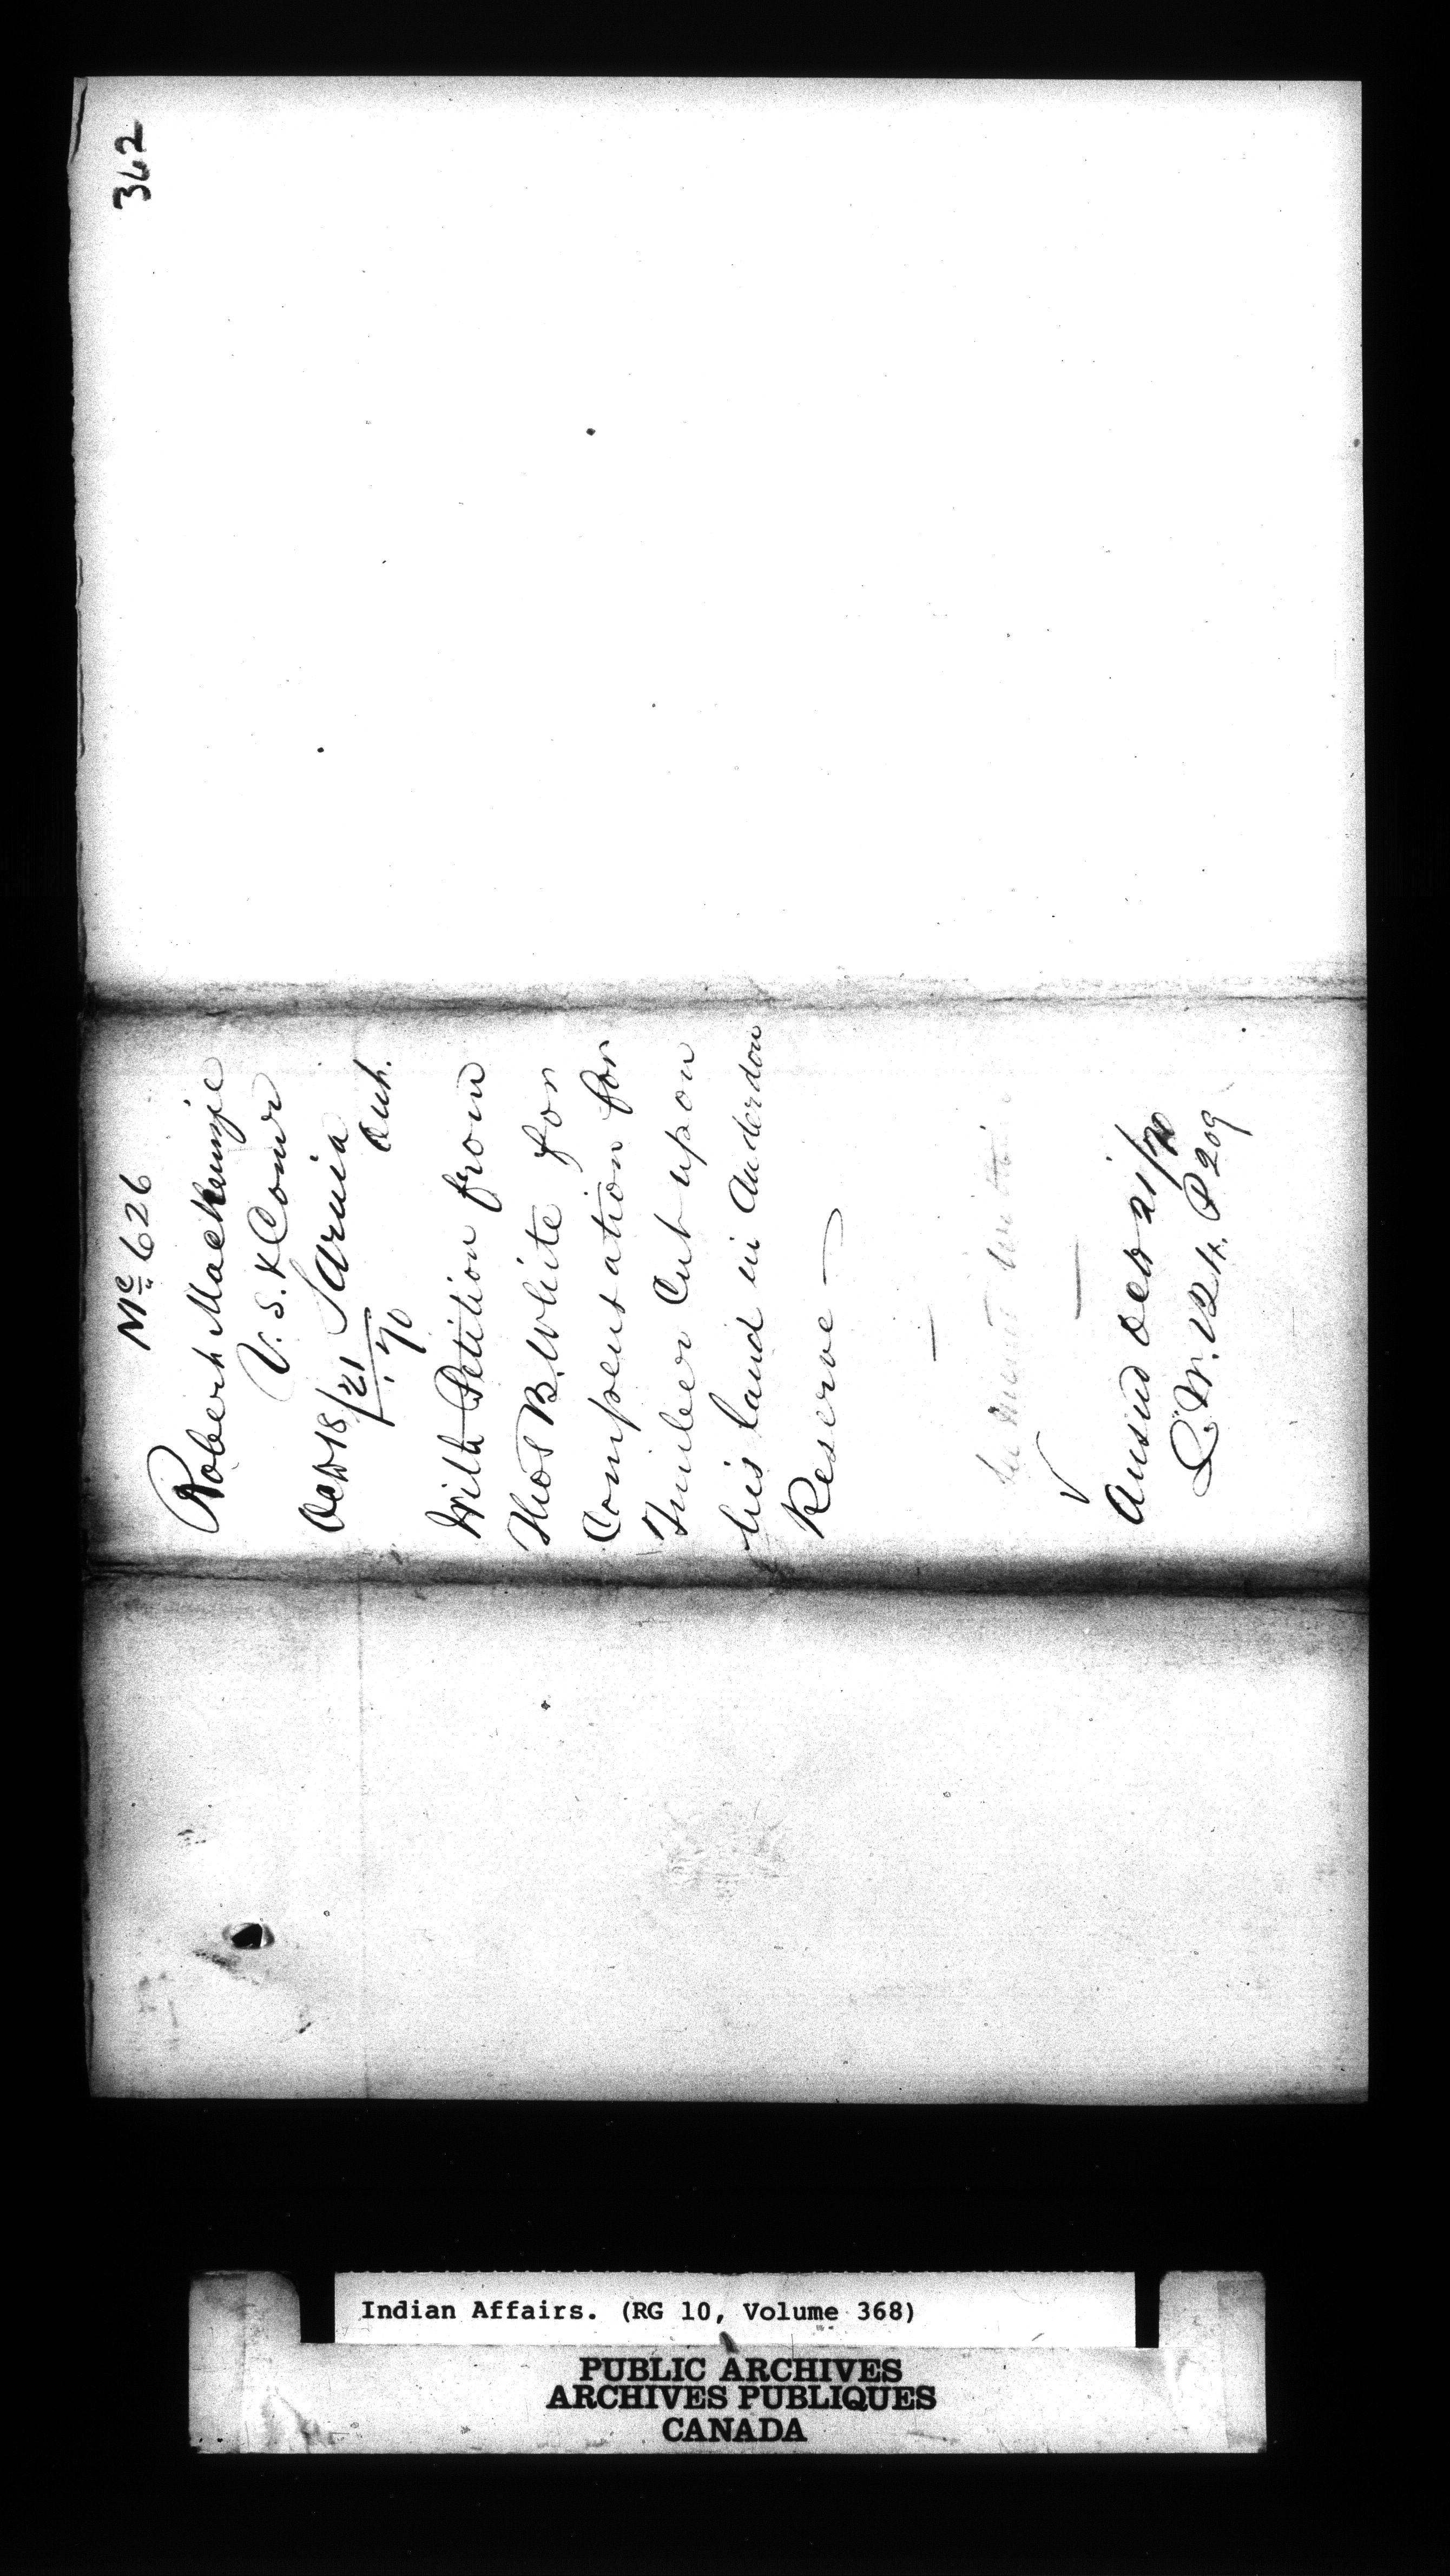 362
Mc 626
Robert Mackenzie
V. S. & Comr
Sarnia
Ont.
Oct 18/21
'70
With Petition from
Thos B. White for
Compensation for
Timber Cut upon
his land in Anderdon
Reserve —
Ansd Oct 21/70
P 209
Indian Affairs. (RG 10, Volume 368)
PUBLIC ARCHIVES
ARCHIVES PUBLIQUES
CANADA